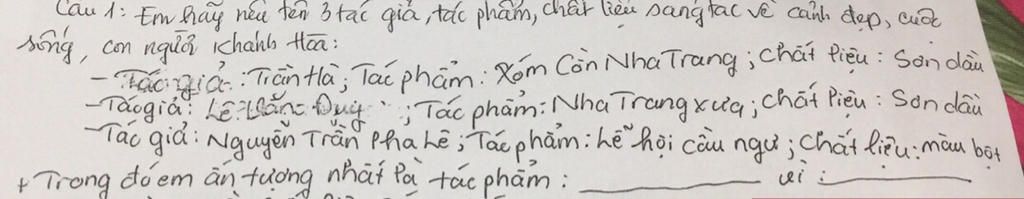 Câu 1: Em hãy nêu tên 3 tác giả, tác phẩm, chất liệu sáng tác về cảnh đẹp, cuộc
sống, con người Khánh Hòa:
- Tác giả: Trần Hà; Tác phẩm: Xóm Cồn Nha Trang; chất liệu: Sơn dầu
- Tác giả: Lê Văn Duy; Tác phẩm: Nha Trang xưa; chất liệu: Sơn dầu
- Tác giả: Nguyễn Trần Pha Lê; Tác phẩm: Lễ hội cầu ngư; chất liệu: màu bột
+ Trong đó em ấn tượng nhất là tác phẩm: ____________ vì: ____________